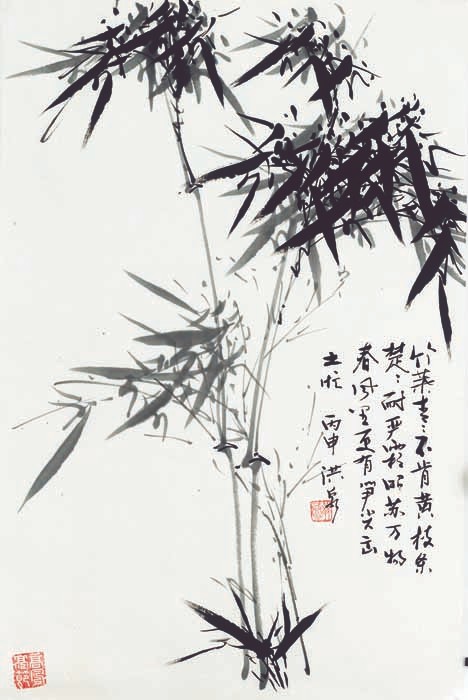 竹葉青〻不肯黄枝条
楚〻耐严霜昭苏万物
春风里更有笋尖出
土忙 丙申 洪泉
高風亮節